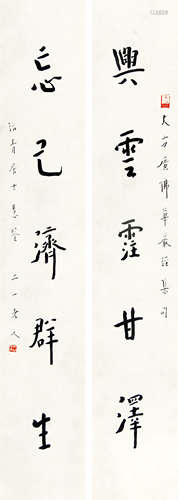 大方廣佛華嚴經集句
興雲霔甘澤
忘己濟群生
居士慧鑒 二一老人